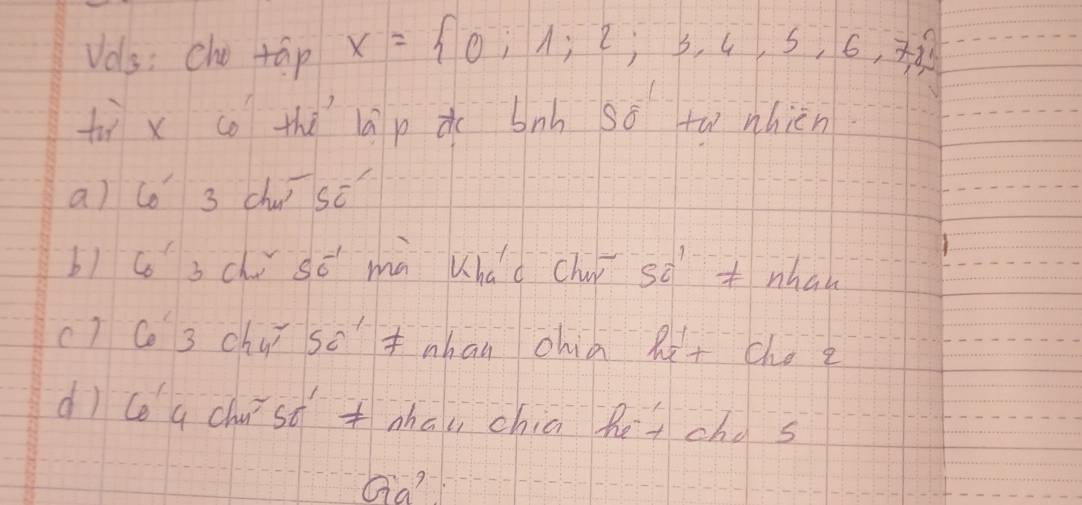 Vd3: Cho tập X = {0; 1; 2; 3, 4, 5, 6, 7,
từ X có thể lập đc bnh số tự nhiên.
a) Có 3 chữ số
b) Có 3 chữ số mà khác chữ số ≠ nhau
c) Có 3 chữ số ≠ nhau chia hết cho 2
d) Có 4 chữ số ≠ nhau chia hết cho 5
Giả: